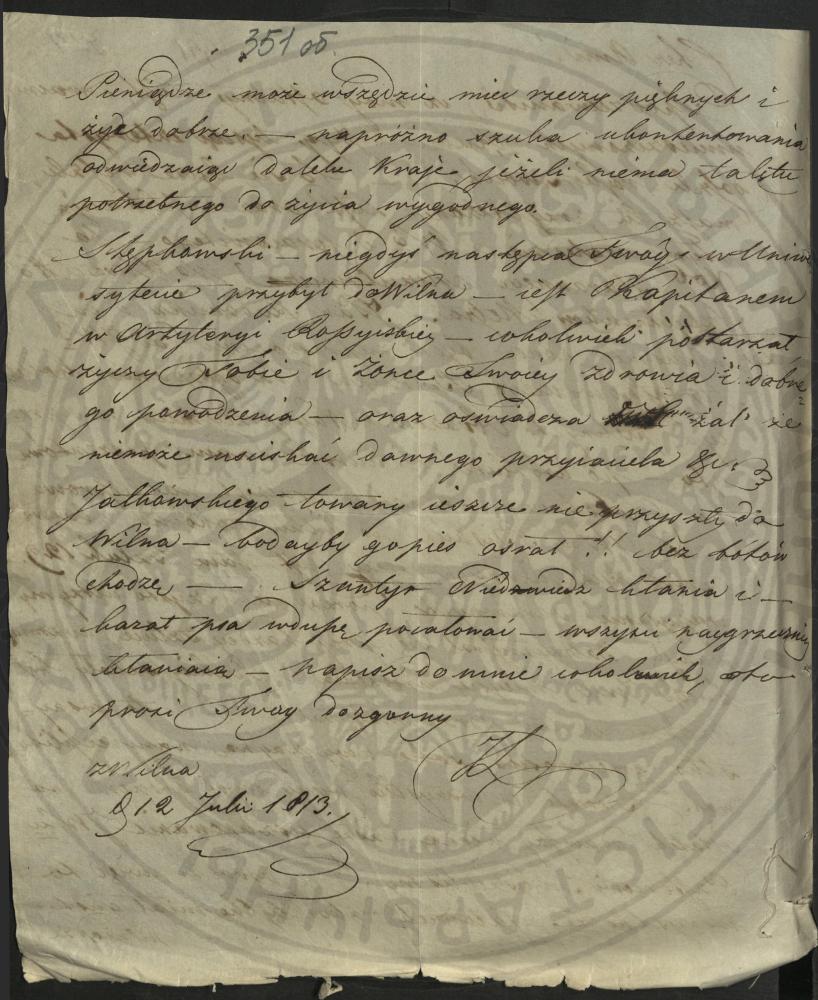 351 об.
Pieniądze może wszędzie mieć rzeczy pięknych i
żyć dobrze. — napróżno szuka ukontentowania
odwiedzaiąc dalekie Kraje, jeżeli niema
potrzebnego do życia wygodnego.
Stępkowski — niegdyś następca Twoy w Uniwer
sytecie przybył do Wilna — iest Kapitanem
w Artyleryi Rossyiskiey — cokolwiek postarzał
życzy Tobie i Żonce Twoiey zdrowia i dobre-
go powodzenia — oraz oswiadcza żal że
niemoże usciskać dawnego przyiaciela &c.
Jałkowskiego towary ieszcze nie przyszły do
Wilna — bodayby go pies osrał!! bez bótów
chodzę — Szantyr Niedzwiedz kłania i —
kazał psa wdupę pocałować — wszyscy naygrzeczniey
kłaniaią — napisz do mnie cokolwiek, oto
prosi Twoy dozgonny
z Wilna
d 12 Julii 1813.